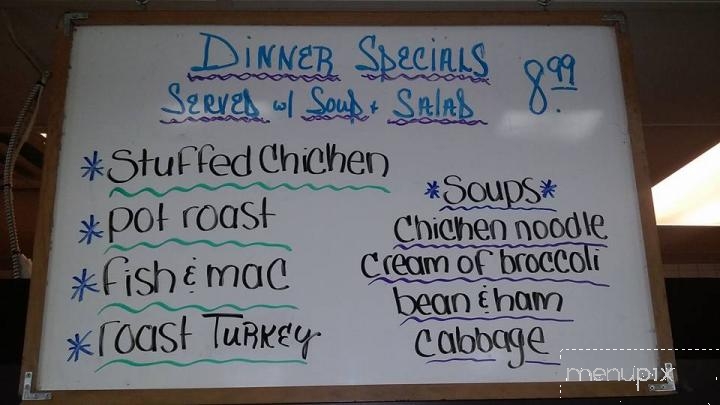 Dinner Specials
Served w/ Soup + Salad
8.99
*Stuffed Chicken
*pot roast
*fish & mac
*roast Turkey
*Soups*
Chicken noodle
Cream of broccoli
bean & ham
Cabbage
menupix